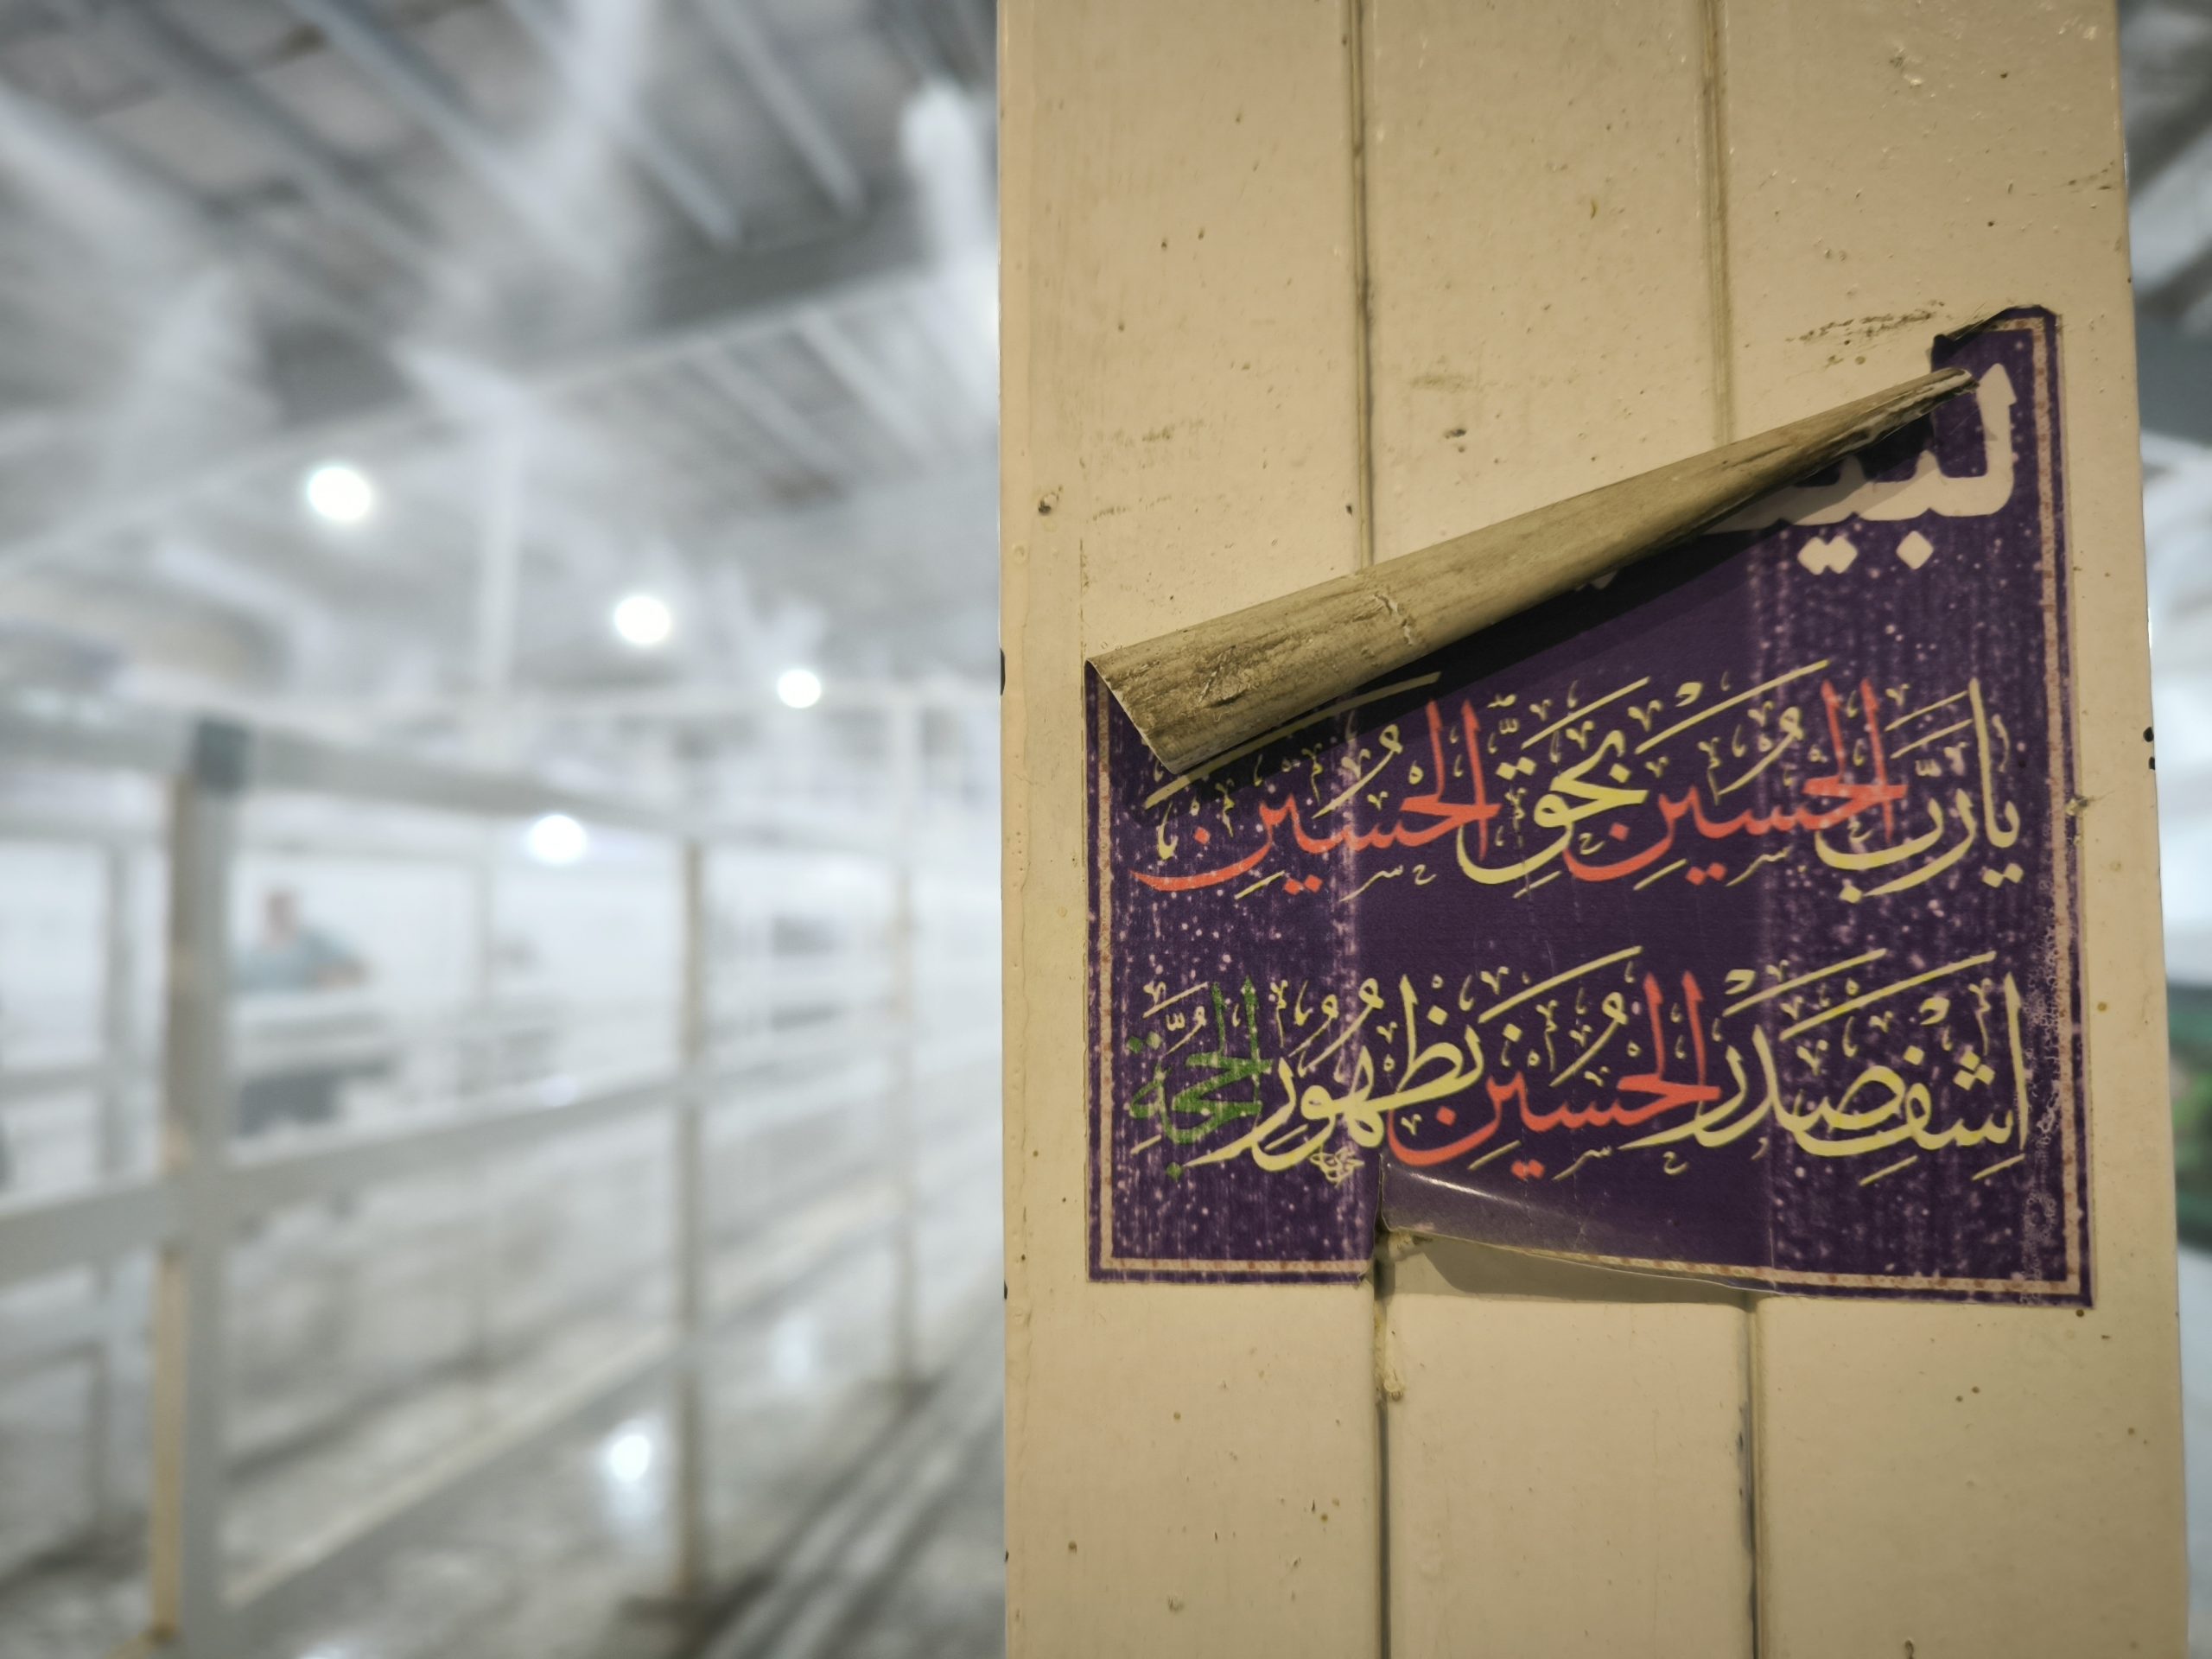 يَارَبَّ الْحُسَيْنِ بِحَقِّ الْحُسَيْنِ
اِشْفِ صَدْرَ الْحُسَيْنِ بِظُهُورِ الْحُجَّةِ